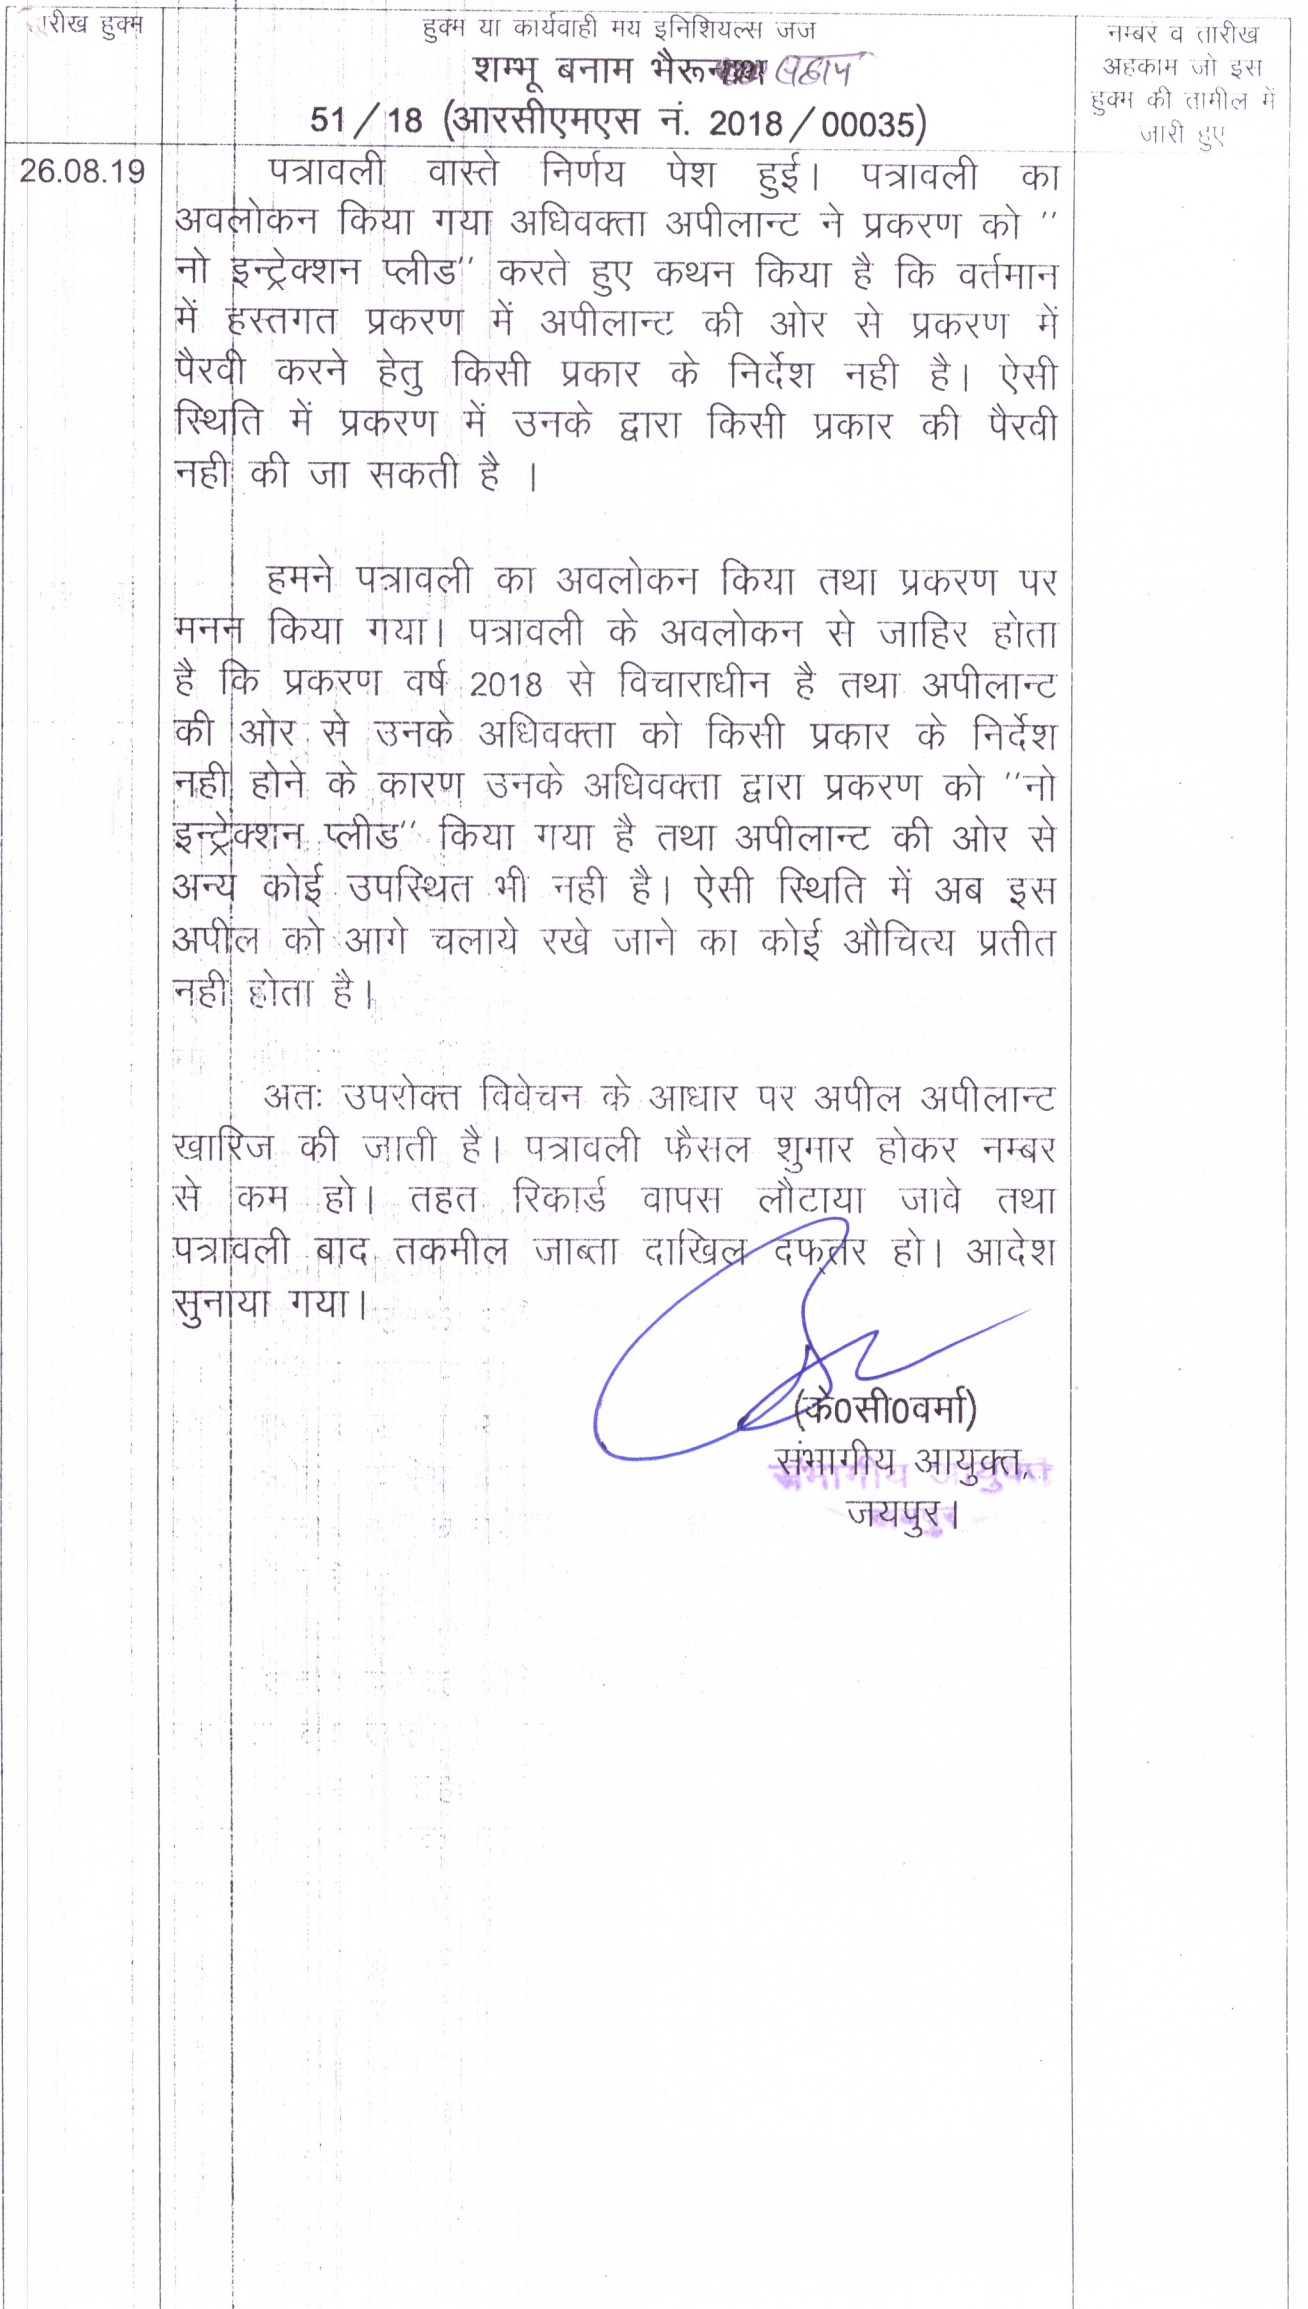 तारीख हुक्म
हुक्म या कार्यवाही मय इनिशियल्स जज
शम्भू बनाम भैरू सहाय
51/18 (आरसीएमएस नं. 2018/00035)
नम्बर व तारीख
अहकाम जो इस
हुक्म की तामील में
जारी हुए
26.08.19
पत्रावली वास्ते निर्णय पेश हुई। पत्रावली का
अवलोकन किया गया अधिवक्ता अपीलान्ट ने प्रकरण को ''
नो इन्ट्रेक्शन प्लीड'' करते हुए कथन किया है कि वर्तमान
में हस्तगत प्रकरण में अपीलान्ट की ओर से प्रकरण में
पैरवी करने हेतु किसी प्रकार के निर्देश नही है। ऐसी
स्थिति में प्रकरण में उनके द्वारा किसी प्रकार की पैरवी
नही की जा सकती है ।
हमने पत्रावली का अवलोकन किया तथा प्रकरण पर
मनन किया गया। पत्रावली के अवलोकन से जाहिर होता
है कि प्रकरण वर्ष 2018 से विचाराधीन है तथा अपीलान्ट
की ओर से उनके अधिवक्ता को किसी प्रकार के निर्देश
नही होने के कारण उनके अधिवक्ता द्वारा प्रकरण को ''नो
इन्ट्रेक्शन प्लीड'' किया गया है तथा अपीलान्ट की ओर से
अन्य कोई उपस्थित भी नही है। ऐसी स्थिति में अब इस
अपील को आगे चलाये रखे जाने का कोई औचित्य प्रतीत
नही होता है।
अतः उपरोक्त विवेचन के आधार पर अपील अपीलान्ट
खारिज की जाती है। पत्रावली फैसल शुमार होकर नम्बर
से कम हो। तहत रिकार्ड वापस लौटाया जावे तथा
पत्रावली बाद तकमील जाब्ता दाखिल दफ्तर हो। आदेश
सुनाया गया।
(के0सी0वर्मा)
संभागीय आयुक्त,
संभागीय आयुक्त
जयपुर।